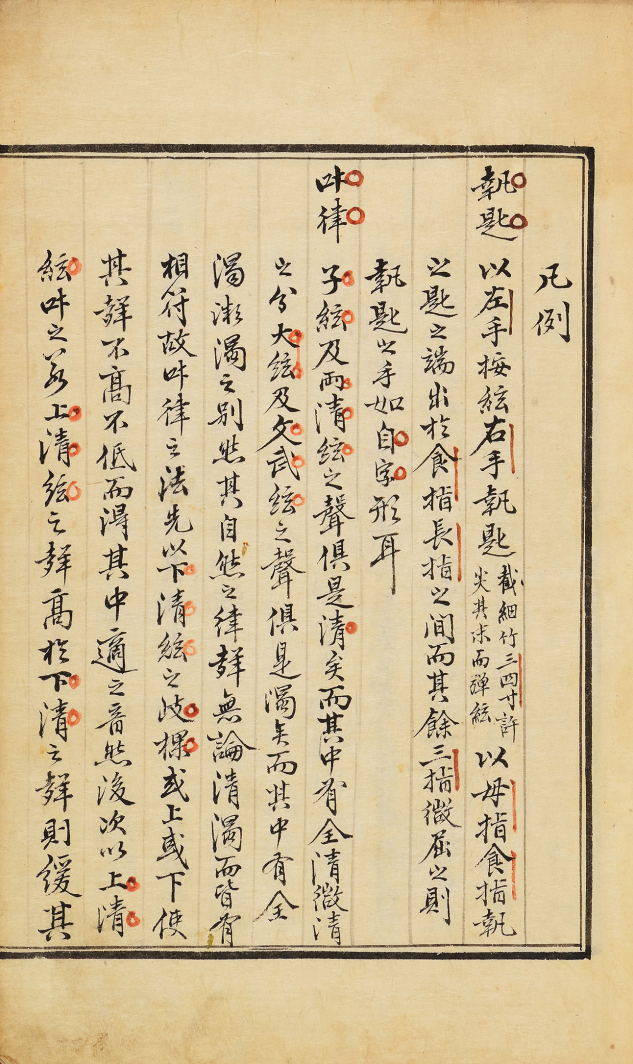 凡例
執匙 以左手按絃右手執匙 截細竹三四寸許 尖其末而彈絃 以母指食指執
之匙之端出於食指長指之间而其餘三指微屈之則
執匙之手如自字形耳
叶律 子絃及兩清絃之聲俱是清矣而其中有全清微清
之分大絃及文武絃之聲俱是濁矣而其中有全
濁澂濁之别然其自然之律聲無論清濁而皆有
相符故叶律之法先以下清絃之歧棵或上或下使
其聲不高不低而得其中適之音然後次以上清
絃叶之若上清絃之聲高於下清之聲則緩其